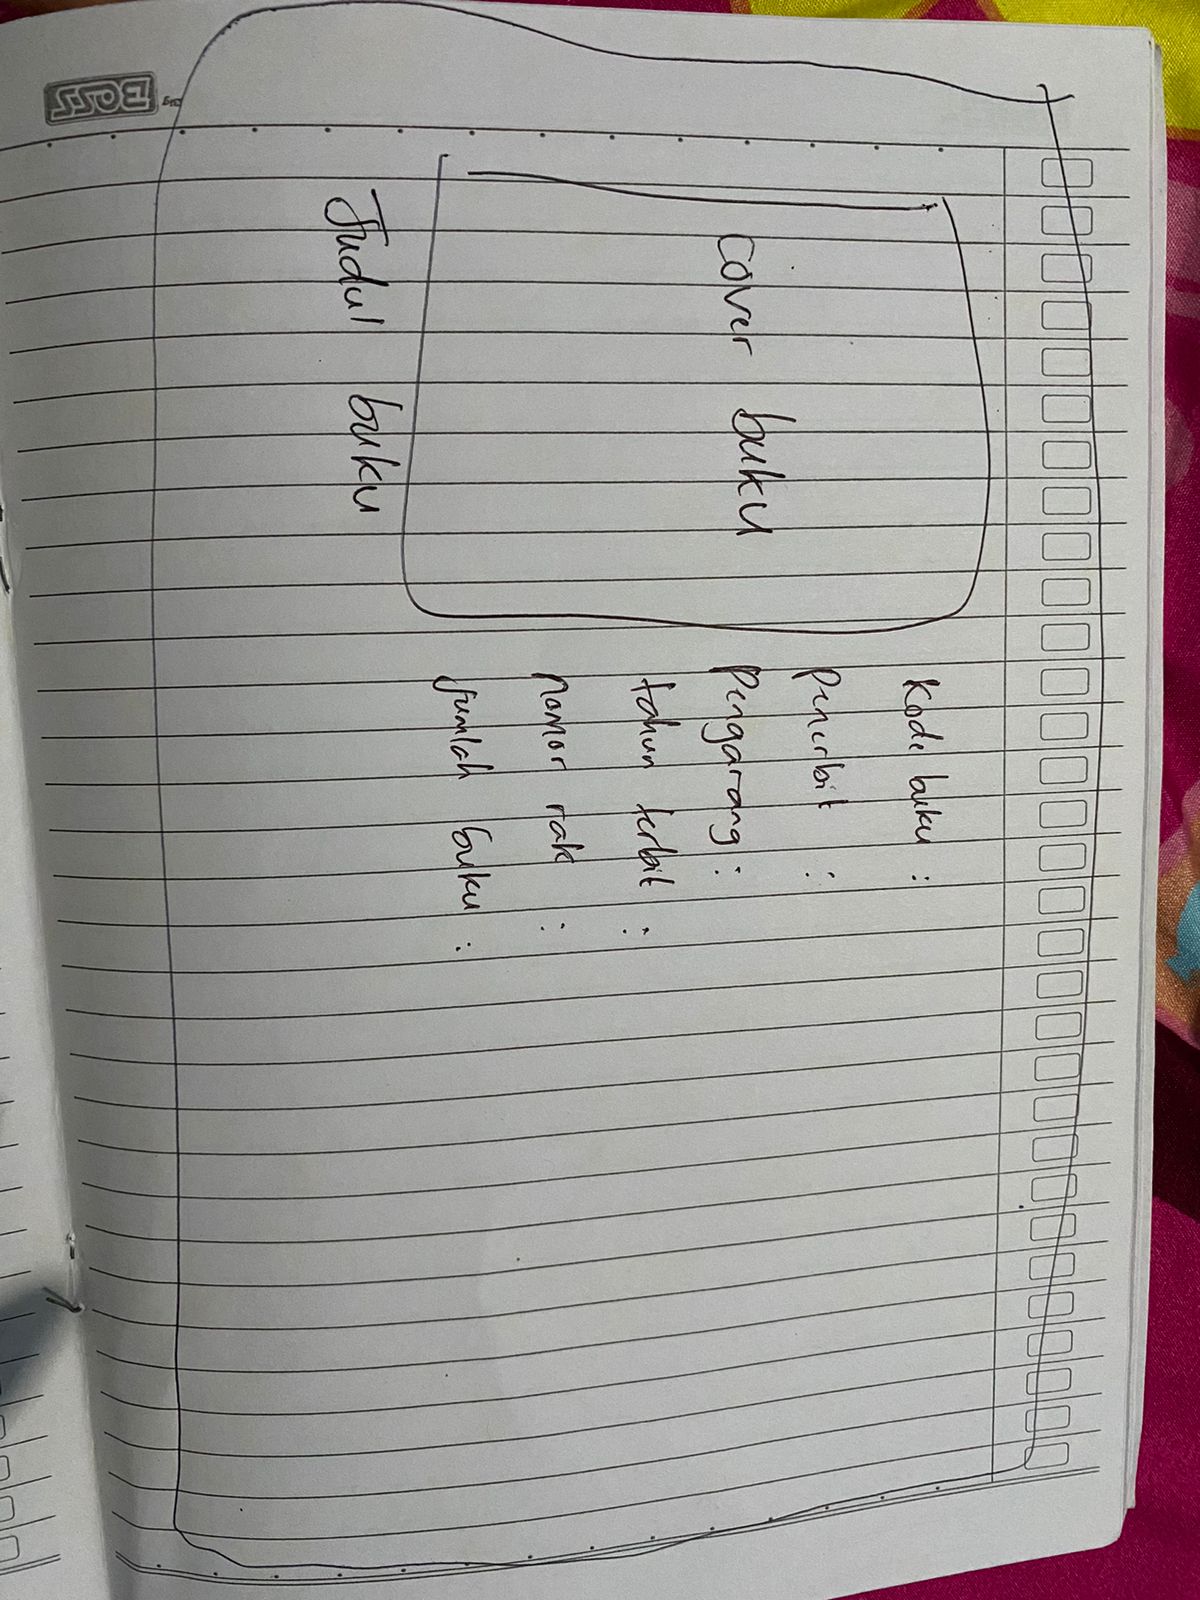 BOSS
Cover buku
Judul buku
Kode buku :
Penerbit :
Pengarang :
tahun terbit :
Nomor rak :
Jumlah buku :